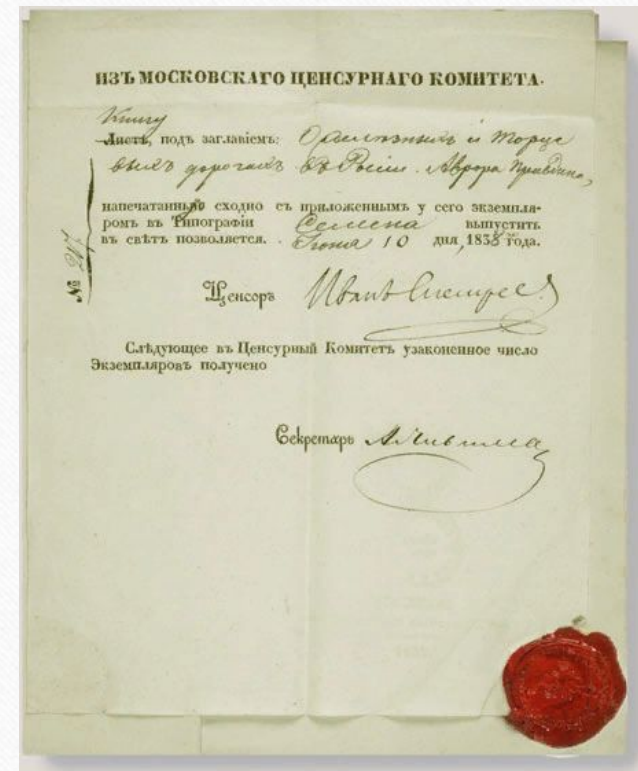 ИЗЪ МОСКОВСКАГО ЦЕНСУРНАГО КОМИТЕТА.
Книгу
Листъ, подъ заглавіемъ: О желѣзныхъ и торце
выхъ дорогахъ въ Россіи. Аврора Правдина,
напечатанную сходно съ приложеннымъ у сего экземпля-
ромъ въ Типографіи Семена выпустить
въ свѣтъ позволяется. Іюня 10 дня, 1838 года.
№ 207
Ценсоръ Иванъ Снегирев.
Слѣдующее въ Ценсурный Комитетъ узаконенное число
Экземпляровъ получено
Секретарь